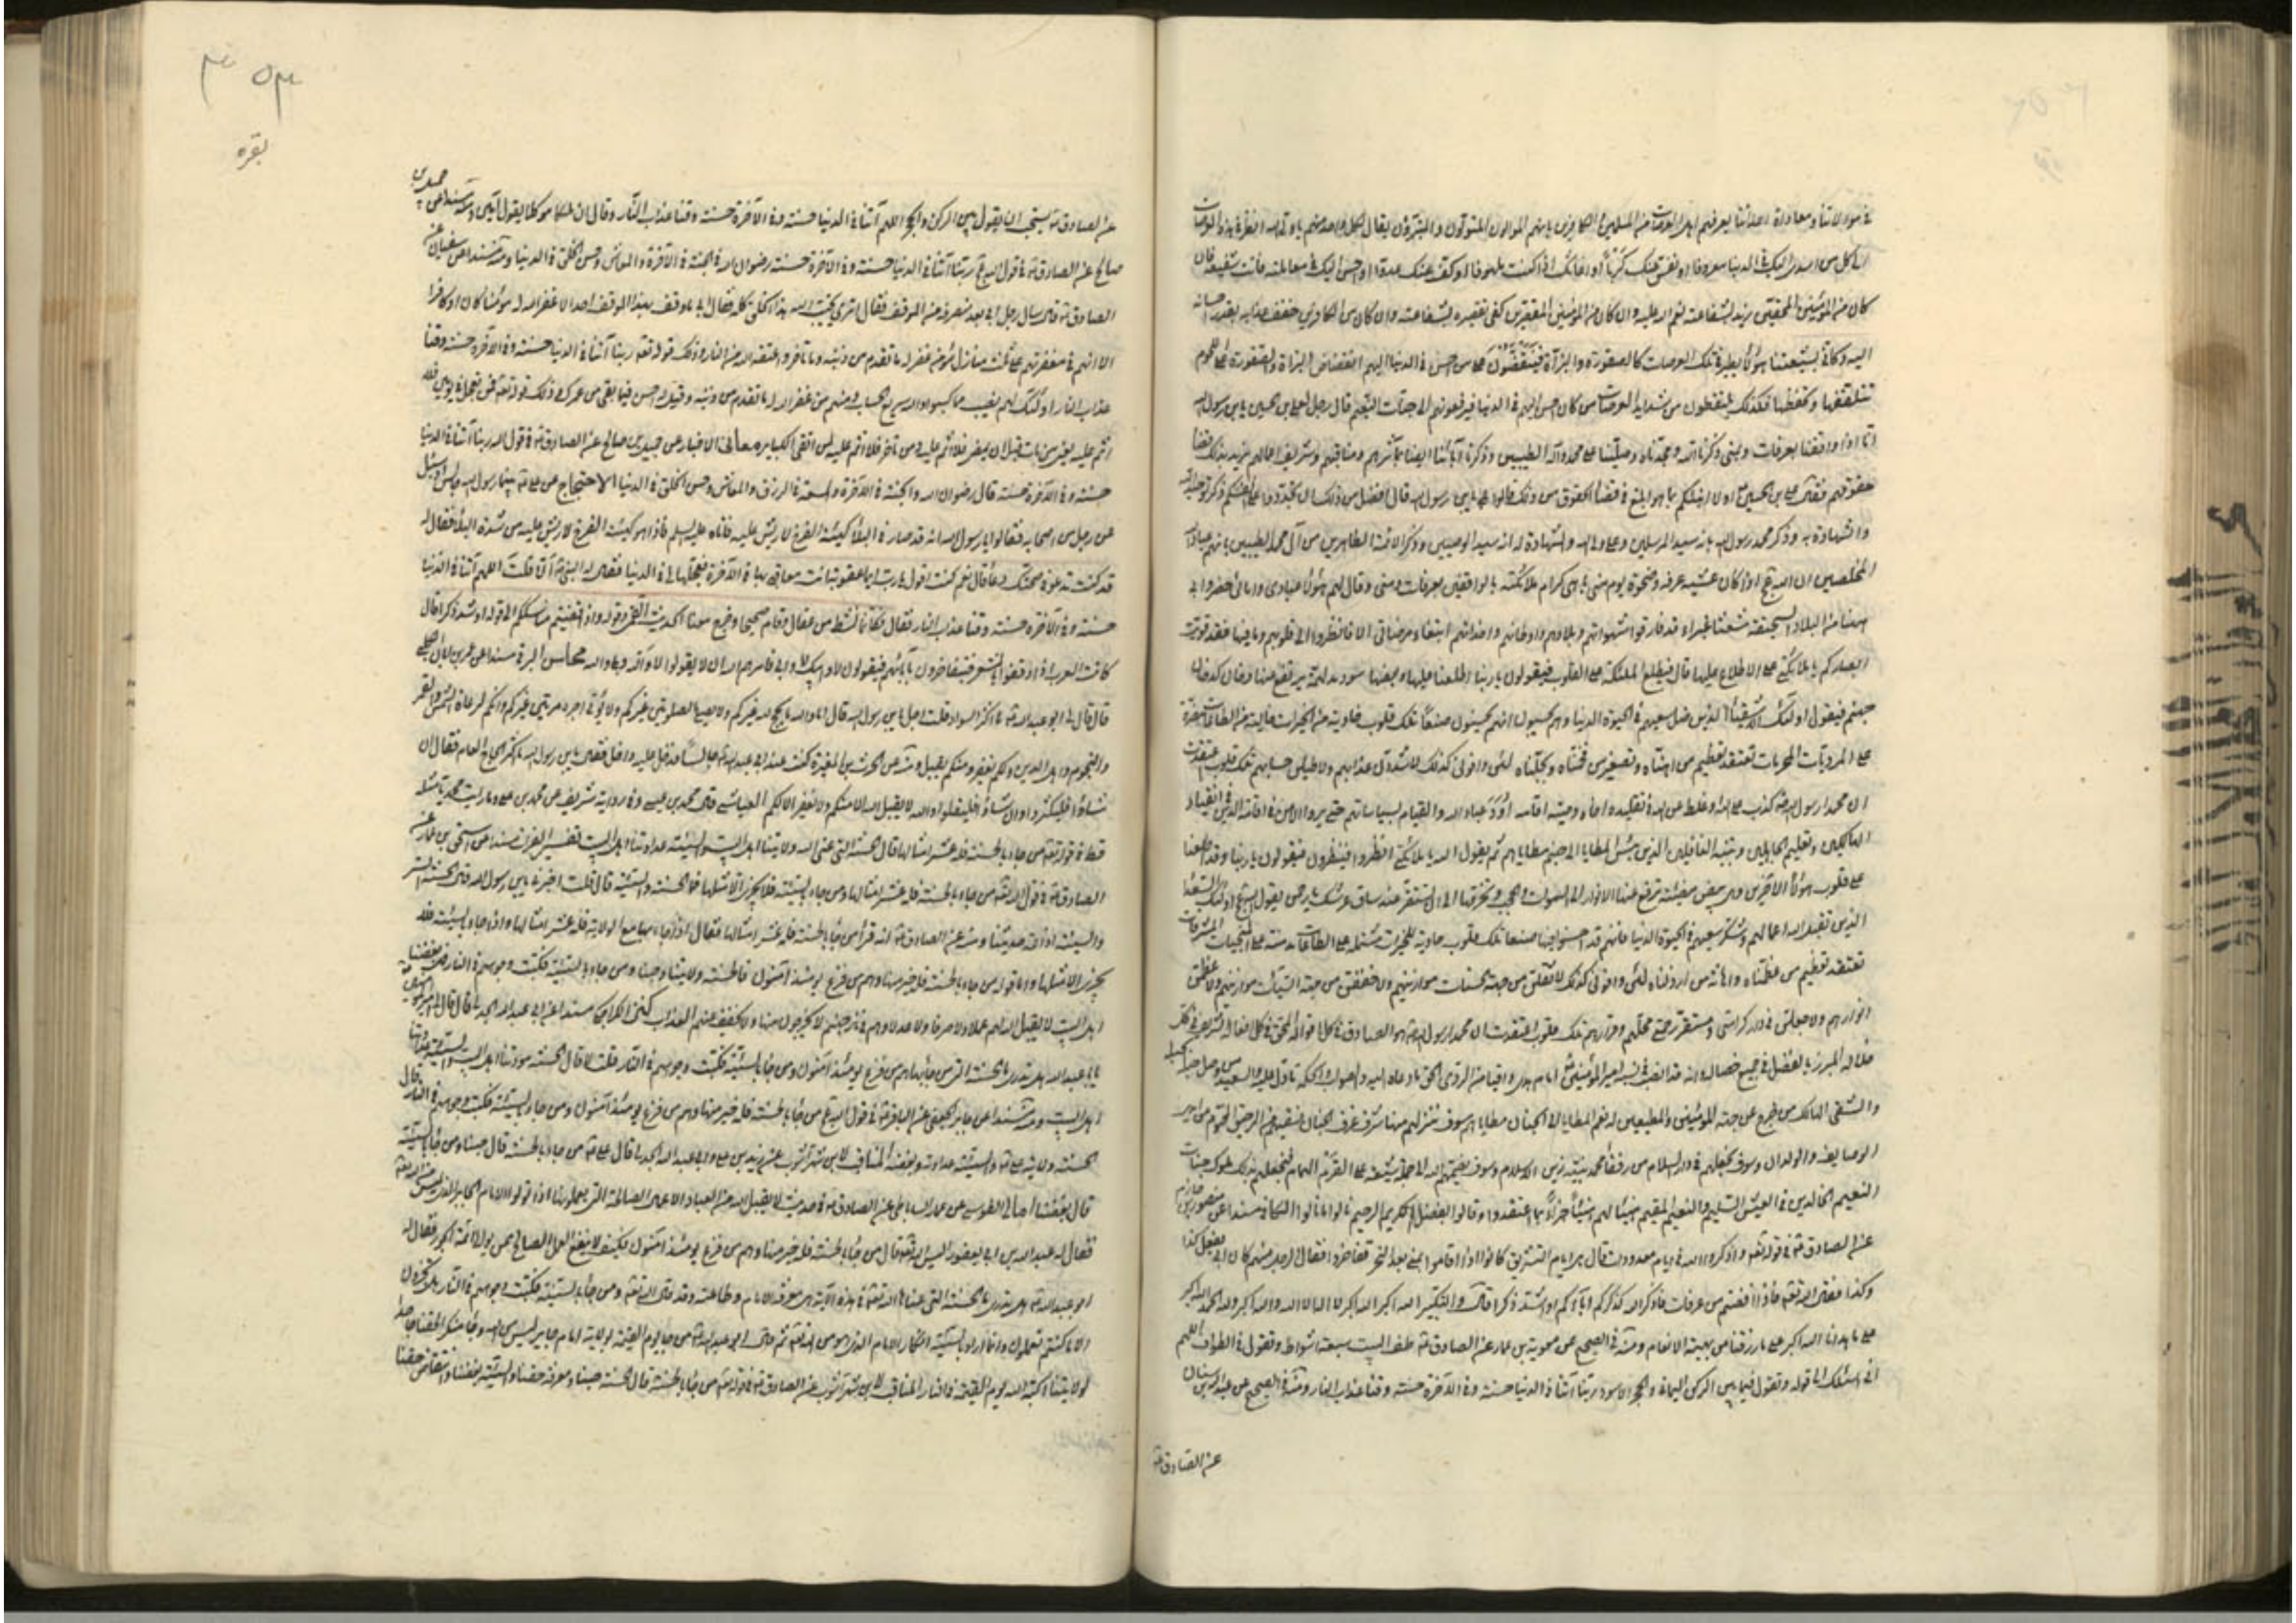 في موالاتنا ومعاداة اعدائنا يعرفهم اهل العرصات من المسلمين والكافرين بانهم الموالون المتولون والمتبرؤن يقال لكل واحد منهم يا ولي الله انظر في هذه العرصات
الى كل من اسدى اليك في الدنيا معروفا او نفس عنك كربا او اغاثك اذ كنت ملهوفا او كف عنك عدوا او احسن اليك في معاملته فانت شفيعه فان
كان من المؤمنين المحقين زيد بشفاعته نعم الله عليه وان كان من المؤمنين المقصرين كفى تقصيره بشفاعته وان كان من الكافرين خفف عذابه بقدر احسانه
اليه وكاني بشيعتنا هؤلاء يطيرون في تلك العرصات كالصقورة والبزاة فينقضون على من احسن في الدنيا اليهم انقضاض البزاة والصقورة على اللحوم
تتلقفها وتحفظها فكذلك يلتقطون من شدايد العرصات من كان احسن اليهم في الدنيا فيرفعونهم الى جنات النعيم قال رجل لعلي بن الحسين يا بن رسول الله
انا اذا وقفنا بعرفات وبمنى ذكرنا الله ومجدناه وصلينا على محمد وآله الطيبين وذكرنا آبائنا ايضا بمآثرهم ومناقبهم وشريف اعمالهم نريد بذلك قضاء
حقوقهم فقال علي بن الحسين ع اولا انبئكم بما هو ابلغ في قضاء الحقوق من ذلك قالوا بلى يا بن رسول الله قال افضل من ذلك ان تجددوا على انفسكم ذكر توحيد الله
والشهادة به وذكر محمد رسول الله بانه سيد المرسلين وعلي ولي الله والشهادة له انه سيد الوصيين وذكر الائمة الطاهرين من آل محمد الطيبين بانهم عباد الله
المخلصين ان الله تع اذا كان عشية عرفة وضحوة يوم منى باهى كرام ملائكته بالواقفين بعرفات ومنى وقال لهم هؤلاء عبادي وامائي حضروا لي
ههنا من البلاد السحيقة شعثا غبراء قد فارقوا شهواتهم وبلادهم واوطانهم واخدانهم ابتغاء مرضاتي الا فانظروا الى قلوبهم وما فيها فقد قويت
ابصاركم يا ملائكتي على الاطلاع عليها قال فيطلع الملئكة على القلوب فيقولون يا ربنا اطلعنا عليها وبعضها سود مدلهمة يرتفع منها دخان كدخان
جهنم فيقول اولئك الاشقياء الذين ضل سعيهم في الحيوة الدنيا وهم يحسبون انهم يحسنون صنعا تلك قلوب خاوية من الخيرات خالية من الطاعات مصرة
على المرديات المحرمات تعتقد تعظيم من اهناه وتصغير من فخمناه وبجلناه لئن وافوني كذلك لاشددن عذابهم ولاطيلن حسابهم تلك قلوب اعتقدت
ان محمدا رسول الله ص كذب على الله او غلط عن الله في تقليده اخاه ووصيه اقامة اود عباد الله والقيام بسياساتهم حتى يروا الامن في اقامة الدين في انقياد
الهالكين وتعليم الجاهلين وتنبيه الغافلين الذين بئس المطايا الى جهنم مطاياهم ثم يقول الله يا ملائكتي انظروا فينظرون فيقولون يا ربنا وقد اطلعنا
على قلوب هؤلاء الآخرين وهي بيض مضيئة ترتفع عنها الانوار الى السموات والحجب وتخرقها الى ان تستقر عند ساق عرشك يا رحمن يقول الله تع اولئك السعداء
الذين تقبل الله اعمالهم وشكر سعيهم في الحيوة الدنيا فانهم قد احسنوا فيها صنعا تلك قلوب حاوية للخيرات مشتملة على الطاعات مدمنة على المنجيات المشرفات
تعتقد تعظيم من عظمناه واهانة من ارذلناه لئن وافوني كذلك لاثقلن من جهة الحسنات موازينهم ولاخففن من جهة السيئات موازينهم ولاعظمن
انوارهم ولاجعلن في دار كرامتي ومستقر رحمتي محلهم وقرارهم تلك قلوب اعتقدت ان محمدا رسول الله ص هو الصادق في كل اقواله المحق في كل افعاله الشريف في كل
خلاله المبرز بالفضل في جميع خصاله وانه قد اصاب في نصبه امير المؤمنين اماما
والشقي الهالك من خرج عن جملة المؤمنين والمطيعين له نعم المطايا الى الجنان مطاياهم سوف ننزلهم منها اشرف غرف الجنان ونسقيهم من الرحيق المختوم من ايدي
الوصايف والولدان وسوف نجعلهم في دار السلام من رفقاء محمد نبيهم زين الاسلام وسوف يضمهم الله الى جملة شيعة علي القرم الهمام فنجعلهم بذلك ملوك جنات
النعيم الخالدين في العيش السليم والنعيم المقيم هنيئا لهم هنيئا جزاء بما اعتقدوا وقالوا بفضل الله الكريم الرحيم نالوا ما نالوا الكافي مسندا عن منصور بن حازم
عن الصادق ع في قوله تع واذكروا الله في ايام معدودات قال هي ايام التشريق كانوا اذا اقاموا بمنى بعد النحر تفاخروا فقال الرجل منهم كان ابي يفعل كذا
وكذا فقال الله تع فاذا افضتم من عرفات فاذكروا الله كذكركم آباءكم او اشد ذكرا قال والتكبير الله اكبر الله اكبر لا اله الا الله والله اكبر ولله الحمد الله اكبر
على ما هدانا الله اكبر على ما رزقنا من بهيمة الانعام ومنه في الصحيح عن معوية بن عمار عن الصادق ع طف بالبيت سبعة اشواط وتقول في الطواف اللهم
اني اسئلك الى قوله وتقول فيما بين الركن اليماني والحجر الاسود ربنا آتنا في الدنيا حسنة وفي الآخرة حسنة وقنا عذاب النار ومنه في الصحيح عن عبد الله بن سنان
عن الصادق ع
٣٥٣
بقره
عن الصادق ع يستحب ان يقول بين الركن والحجر اللهم آتنا في الدنيا حسنة وفي الآخرة حسنة وقنا عذاب النار وقال ان ملكا موكلا يقول آمين ومنه مسندا عن جميل بن
صالح عن الصادق ع في قول الله تع ربنا آتنا في الدنيا حسنة وفي الآخرة حسنة رضوان الله والجنة في الآخرة والمعاش وحسن الخلق في الدنيا ومنه مسندا عن سفيان عن
الصادق ع قال سال رجل ابي بعد منصرفه من الموقف فقال اترى يخيب الله هذا الخلق كله فقال ابي ما وقف بهذا الموقف احد الا غفر الله له مؤمنا كان او كافرا
الا انهم في مغفرتهم على ثلث منازل مؤمن غفر له ما تقدم من ذنبه وما تأخر واعتقه الله من النار وذلك قوله تع ربنا آتنا في الدنيا حسنة وفي الآخرة حسنة وقنا
عذاب النار اولئك لهم نصيب مما كسبوا والله سريع الحساب ومنهم من غفر الله له ما تقدم من ذنبه وقيل له احسن فيما بقي من عمرك وذلك قوله تع فمن تعجل في يومين فلا
اثم عليه يعني من مات قبل ان يمضي فلا اثم عليه ومن تأخر فلا اثم عليه لمن اتقى الكباير معاني الاخبار عن جميل بن صالح عن الصادق ع في قول الله ربنا آتنا في الدنيا
حسنة وفي الآخرة حسنة قال رضوان الله والجنة في الآخرة والسعة في الرزق والمعاش وحسن الخلق في الدنيا الاحتجاج عن علي ع بينا رسول الله جالس اذ سئل
عن رجل من اصحابه فقالوا يا رسول الله انه قد صار في البلاء كهيئة الفرخ لا ريش عليه فاتاه عليه السلم فاذا هو كهيئة الفرخ لا ريش عليه من شدة البلاء فقال له
قد كنت تدعو في صحتك دعاء قال نعم كنت اقول يا رب ايما عقوبة انت معاقبي بها في الآخرة فعجلها لي في الدنيا فقال له النبي ص الا قلت اللهم آتنا في الدنيا
حسنة وفي الآخرة حسنة وقنا عذاب النار فقال فكانما نشط من عقال وقام صحيحا وخرج معنا الحديث القمي وقوله واذا قضيتم مناسككم الى قوله او اشد ذكرا قال
كانت العرب اذا وقفوا بالمشعر يتفاخرون بآبائهم فيقولون لا وابيك لا وابي فامرهم الله ان يقولوا لا والله وبلى والله محاسن البرقي مسندا عن عمر بن ابان الكلبي
قال قال لي ابو عبد الله ع ما اكثر السواد قلت اجل يا بن رسول الله قال اما والله ما يحج لله غيركم ولا يصلي الصلوتين غيركم ولا يؤتى اجره مرتين غيركم وانكم لرعاة الشمس والقمر
والنجوم واهل الدين ولكم يغفر ومنكم يقبل ومنه عن الحرث بن المغيرة كنت عند ابي عبد الله ع جالسا فدخل عليه داخل فقال يا بن رسول الله ما اكثر الحاج العام فقال ان
شاؤا فليكثروا وان شاؤا فليقلوا والله لا يقبل الله الا منكم ولا يغفر الا لكم العياشي قال محمد بن عيسى في رواية شريف عن محمد بن علي وما رايت محمديا مثله
قط في قوله تع من جاء بالحسنة فله عشر امثالها قال الحسنة التي عنى الله ولايتنا اهل البيت والسيئة عداوتنا اهل البيت تفسير الفرات مسندا عن اسحق بن عمار عن
الصادق ع في قول الله تع من جاء بالحسنة فله عشر امثالها ومن جاء بالسيئة فلا يجزى الا مثلها فما الحسنة والسيئة قال قلت اخبرنا يا بن رسول الله قال الحسنة الستر
والسيئة اذاعة حديثنا ومنه عن الصادق ع انه قرأ من جاء بالحسنة فله عشر امثالها فقال اذا جاء بها مع الولاية فله عشر امثالها واذا جاء بالسيئة فلا
يجزى الا مثلها واما قوله من جاء بالحسنة فله خير منها وهم من فزع يومئذ آمنون فالحسنة ولايتنا وحبنا ومن جاء بالسيئة فكبت وجوههم في النار بغضنا
اهل البيت لا يقبل الله لهم عملا ولا صرفا ولا عدلا وهم في نار جهنم لا يخرجون منها ولا يخفف عنهم العذاب كنز الكراجكي مسندا عن ابي عبد الله الجدلي قال قال لي امير المؤمنين ع
يا با عبد الله هل تدري ما الحسنة التي من جاء بها هم من فزع يومئذ آمنون ومن جاء بالسيئة فكبت وجوههم في النار قلت لا قال الحسنة مودتنا اهل البيت والسيئة عداوتنا
اهل البيت ومنه مسندا عن جابر الجعفي عن الباقر ع في قول الله تع من جاء بالحسنة فله خير منها وهم من فزع يومئذ آمنون ومن جاء بالسيئة فكبت وجوههم في النار قال
الحسنة ولاية علي ع والسيئة عداوته وبغضه المناقب لابن شهر آشوب عن زيد بن علي وابي عبد الله الجدلي قال علي ع من جاء بالحسنة قال حبنا ومن جاء بالسيئة
قال بغضنا امالي الطوسي عن عمار الساباطي عن الصادق ع في حديث لا يقبل الله من العباد الاعمال الصالحة التي يعملونها اذا تولوا الامام الجاير الذي ليس من الله تع
فقال له عبد الله بن ابي يعفور اليس الله تع قال من جاء بالحسنة فله خير منها وهم من فزع يومئذ آمنون فكيف لا ينفع العمل الصالح ممن يوالي ائمة الجور فقال له
ابو عبد الله ع هل تدري ما الحسنة التي عناها الله تع في هذه الآية هي معرفة الامام وطاعته وقد قال الله تع ومن جاء بالسيئة فكبت وجوههم في النار هل تجزون
الا ما كنتم تعملون وانما اراد بالسيئة انكار الامام الذي هو من الله تع ثم قال ابو عبد الله ع من جاء يوم القيمة بولاية امام جاير ليس من الله وجاء منكرا لحقنا جاحدا
لولايتنا اكبه الله يوم القيمة في النار المناقب لابن شهر آشوب عن الصادق ع في قوله تع من جاء بالحسنة قال الحسنة حبنا ومعرفة حقنا والسيئة بغضنا وانتقاص حقنا